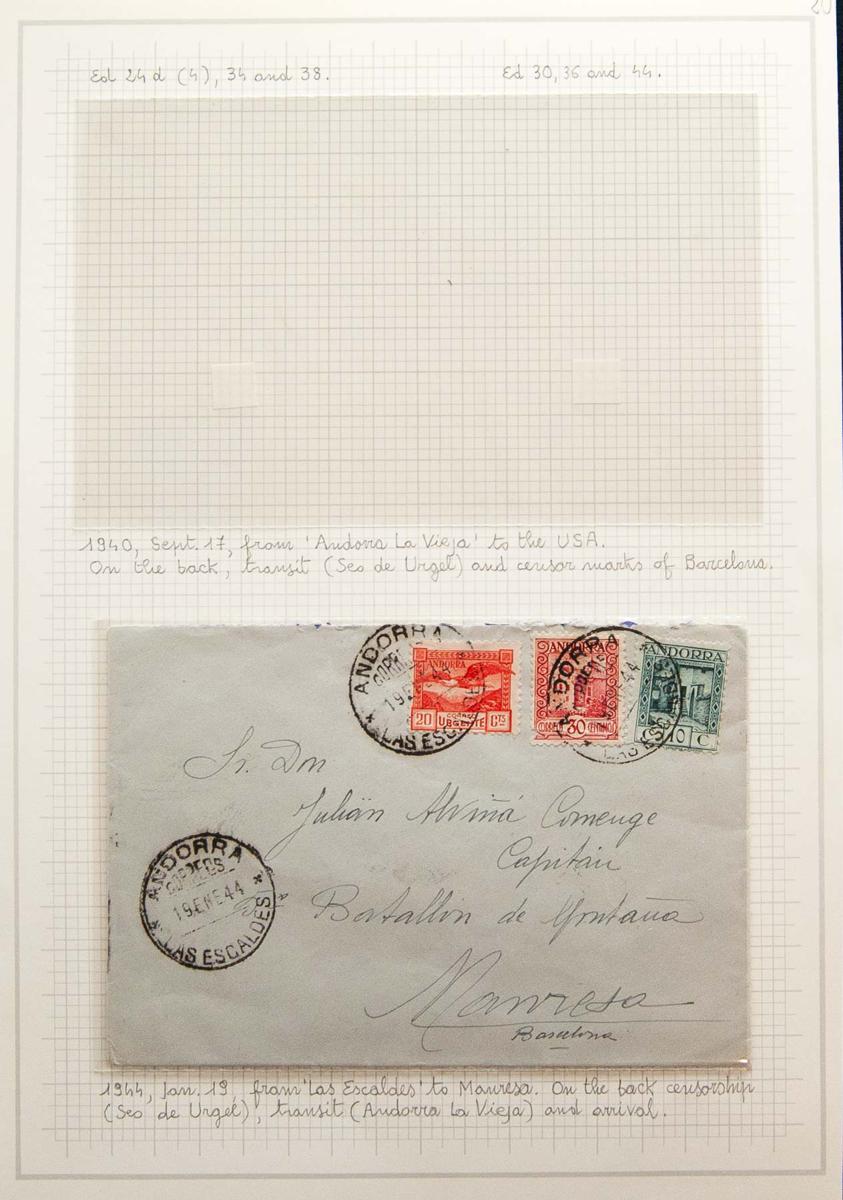 20
Ed 24 d (4), 34 and 38.
Ed 30, 36 and 44.
1940, Sept. 17, from 'Andorra La Vieja' to the USA.
On the back, transit (Seo de Urgel) and censor marks of Barcelona.
ANDORRA
CORREOS
19 ENE 44
LAS ESCALDES
ANDORRA
20 CORREO URGENTE CTS
ANDORRA
CORREOS 30 CENTIMOS
ANDORRA
10 C
Sr. Don
Julián Alviñá Comenge
Capitán
Batallón de Montaña
Manresa
Barcelona
ANDORRA
CORREOS
19 ENE 44
LAS ESCALDES
1944, Jan. 19, from 'Las Escaldes' to Manresa. On the back censorship
(Seo de Urgel), transit (Andorra La Vieja) and arrival.